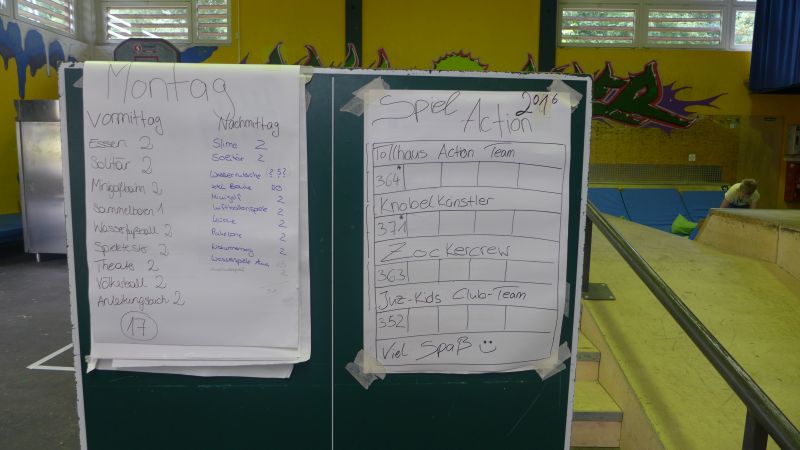 Montag
Vormittag
Essen 2
Solitär 2
Minigolfbahn 2
Sammelboxen 1
Wasserfußball 2
Spieltester 2
Theater 2
Volksball 2
Anleitungsbuch 2
17
Nachmittag
Slime 2
Solitär 2
Wasserrutsche
Minigolf 2
Luftballonspiele 2
2
2
2
Wasserspiele Aus
2
Spiel 2016
Action
Tollhaus Action Team
364*
Knobelkünstler
371*
Zockercrew
363
Juz-Kids Club-Team
352
Viel Spaß